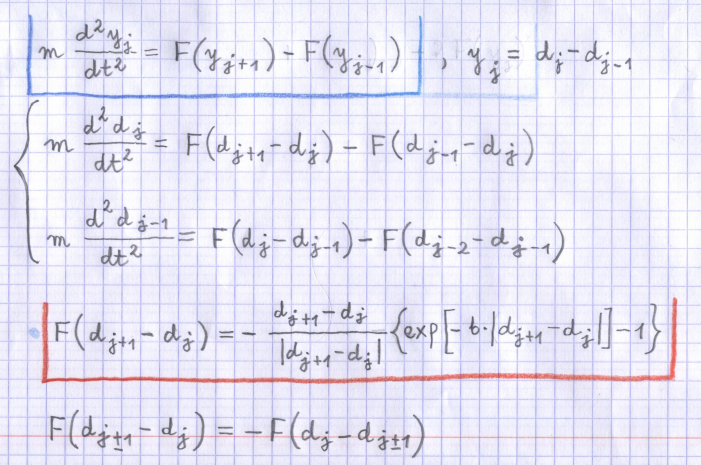 m d²y_j/dt² = F(y_{j+1}) - F(y_{j-1}) , y_j = d_j - d_{j-1}
m d²d_j/dt² = F(d_{j+1} - d_j) - F(d_{j-1} - d_j)
m d²d_{j-1}/dt² = F(d_j - d_{j-1}) - F(d_{j-2} - d_{j-1})
F(d_{j+1} - d_j) = - (d_{j+1} - d_j)/|d_{j+1} - d_j| {exp[-b·|d_{j+1} - d_j|] - 1}
F(d_{j±1} - d_j) = -F(d_j - d_{j±1})